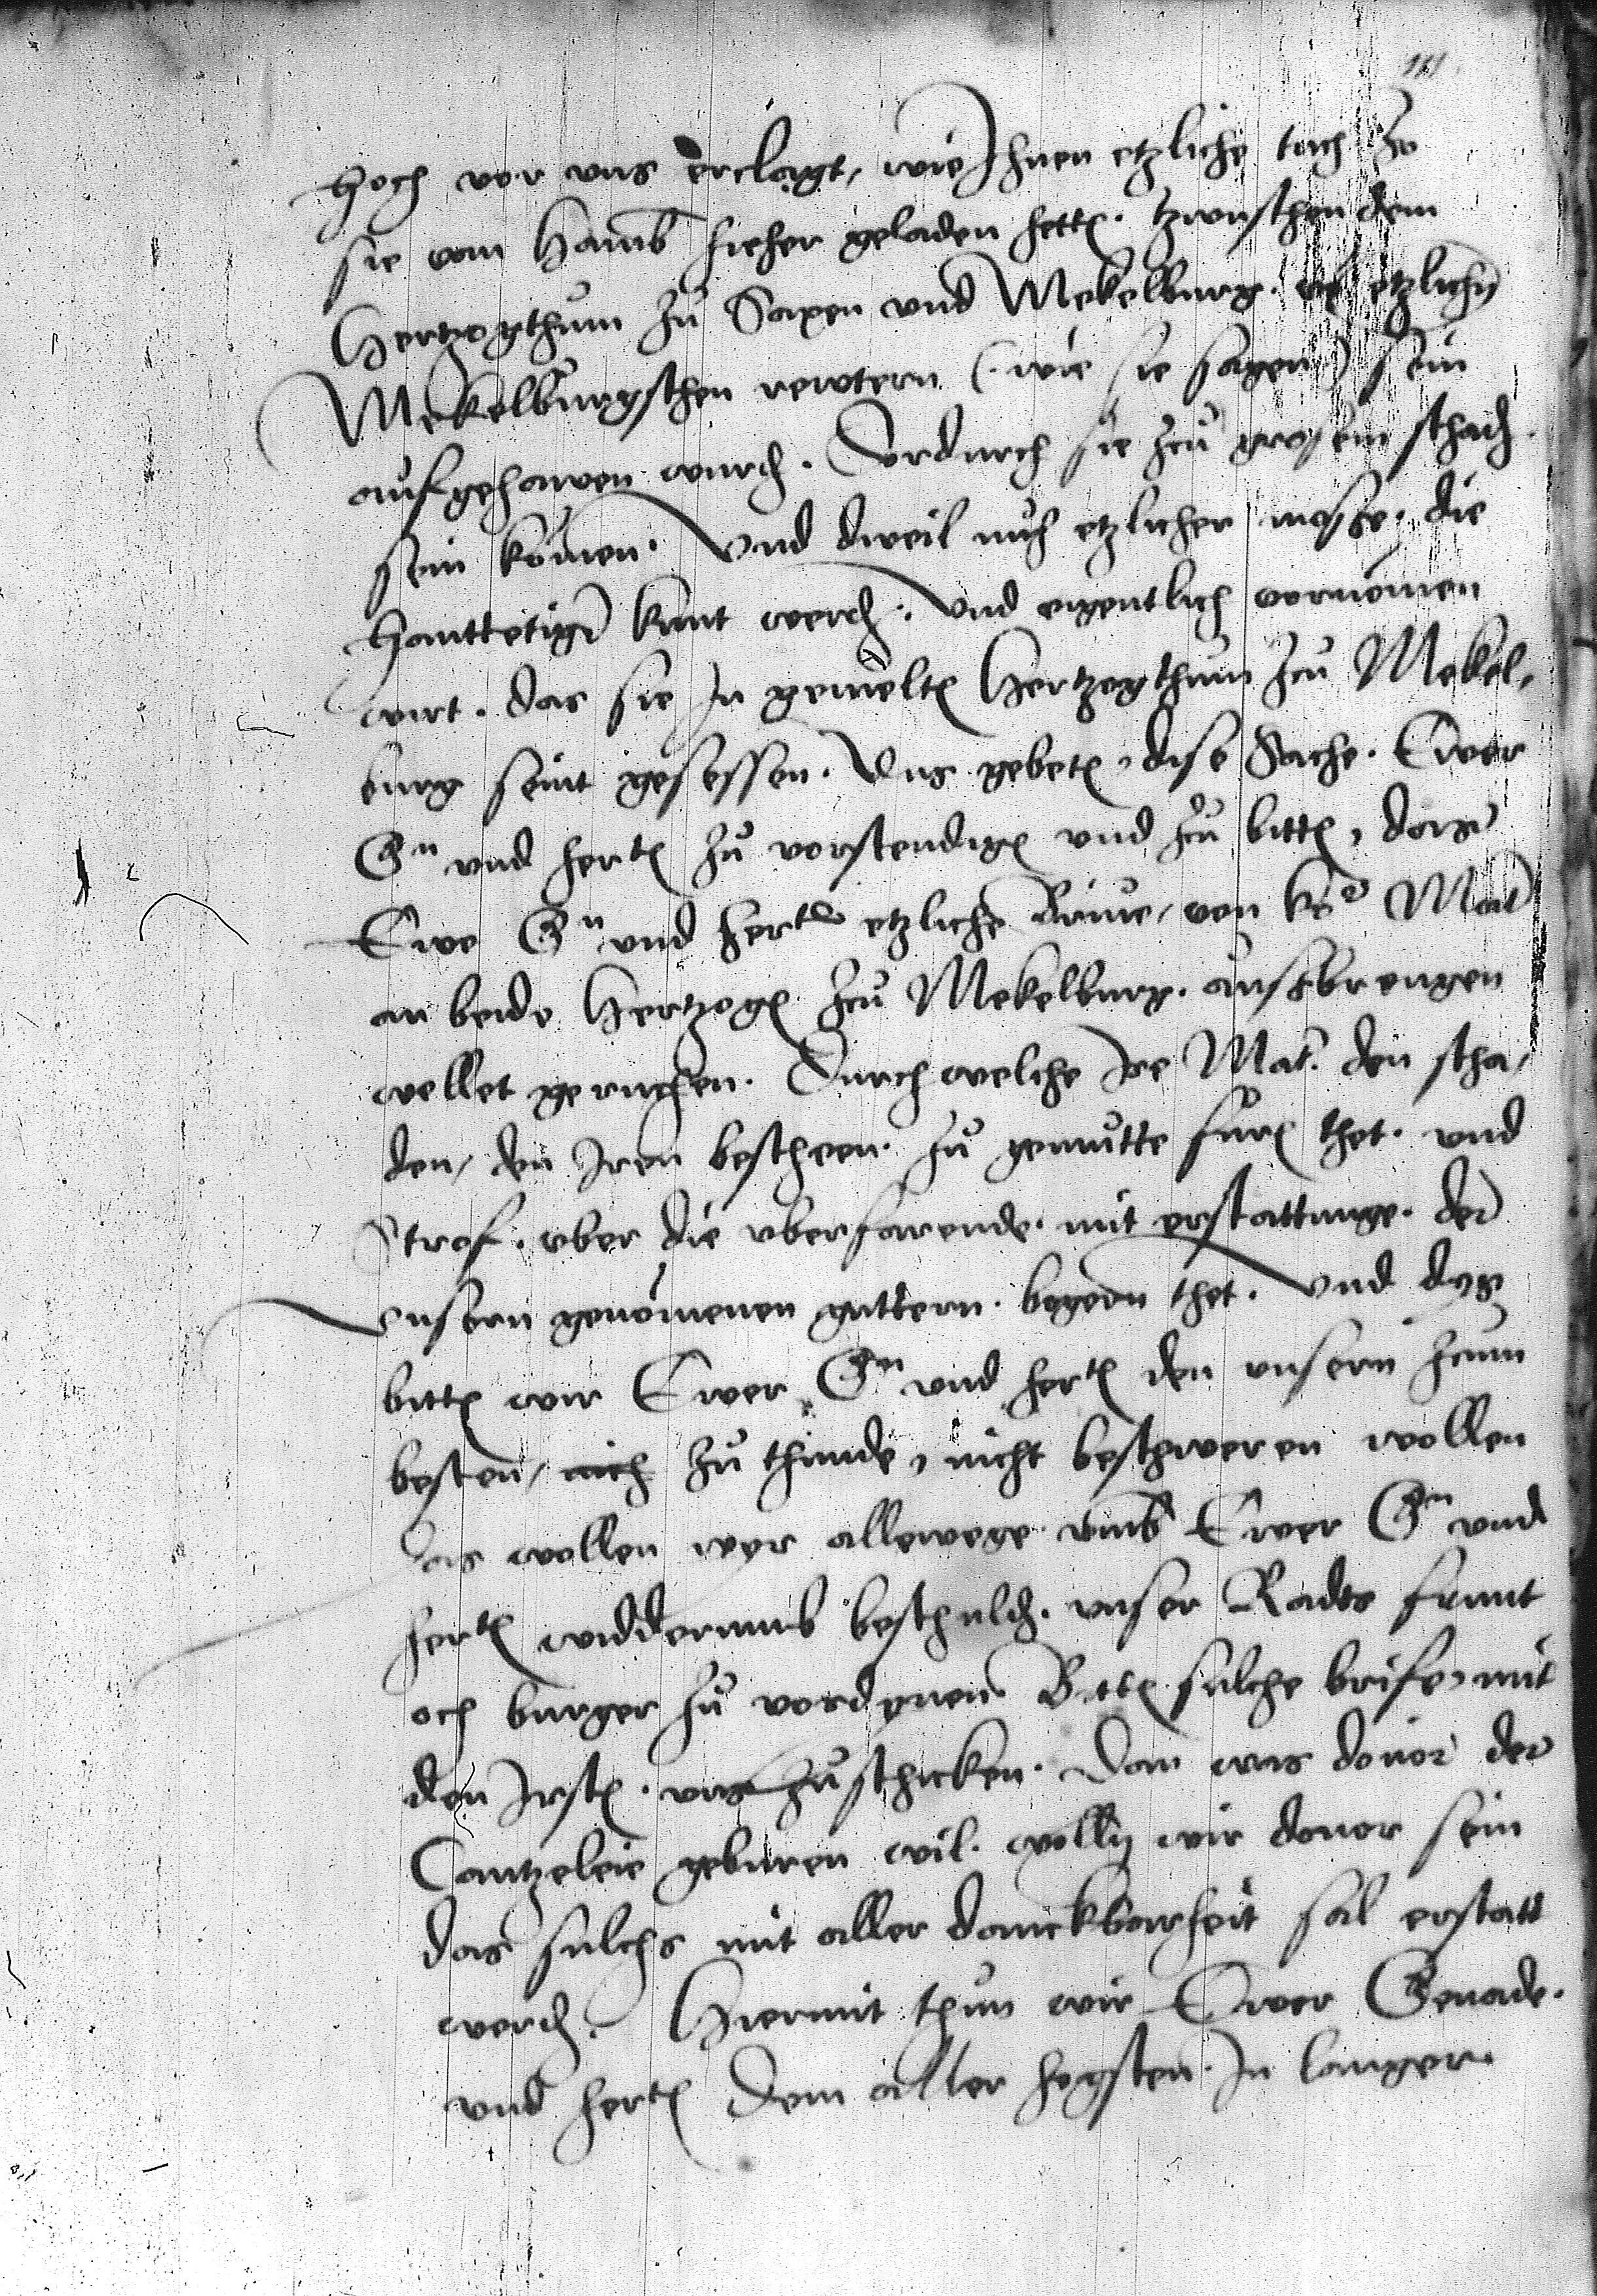 161
hoch vor vns erclagt, wie Ihnen etzliche tuch so
sie vom Hamb hieher geladen hett. tzwuschen dem
Hertzogthum zu Saxen vnd Mekelburg. etzlichn
Mekelburgschen rewtern (wie sie sagen) sein
aufgehawen wurd. Vrdurch sie zcu grosem schad
sein komen. Vnd dweil nuh etzlicher mosse. die
Hanttetiger kunt werd. vnd eigentlich vornomen
wirt. das sie In gemelt Hertzogthum zcu Mekel,
burg seint gesessen. Vns gebet, dise Sache. Ewer
Gn vnd hert zu vorstendig vnd zu bitt, das
Ewe Gn vnd hert etzliche Briue, von ko Mat
an beide Hertzog zcu Mekelburg. ausbrengen
wellet geruchen. Durch welche Ire Mat. den scha,
den, den Iren bescheen. zu gemutte fur thet. vnd
Strof. vber die vberfarende. mit erstattunge. der
vnsern genomenen guttern. begern thet. vnd dys
bitt wir Ewer Gn vnd hert den vnsern zcum
besten, nich zu thunde, nicht beschweren wollen
das wollen wyr allewege vmb Ewer Gn vnd
hert widderumb beschuld. vnser Radts frunt
och burger zu vordynen Bitt sulche brife, mit
den Irst. vns zuschicken. Dan was douor der
Cantzeleie geburen wil. wolln wir douor sein
das sulchs mit aller danckbarheit sal erstatt
werd. Hiermit thun wir Ewer Genade.
vnd hert Dem aller hogsten. In langer